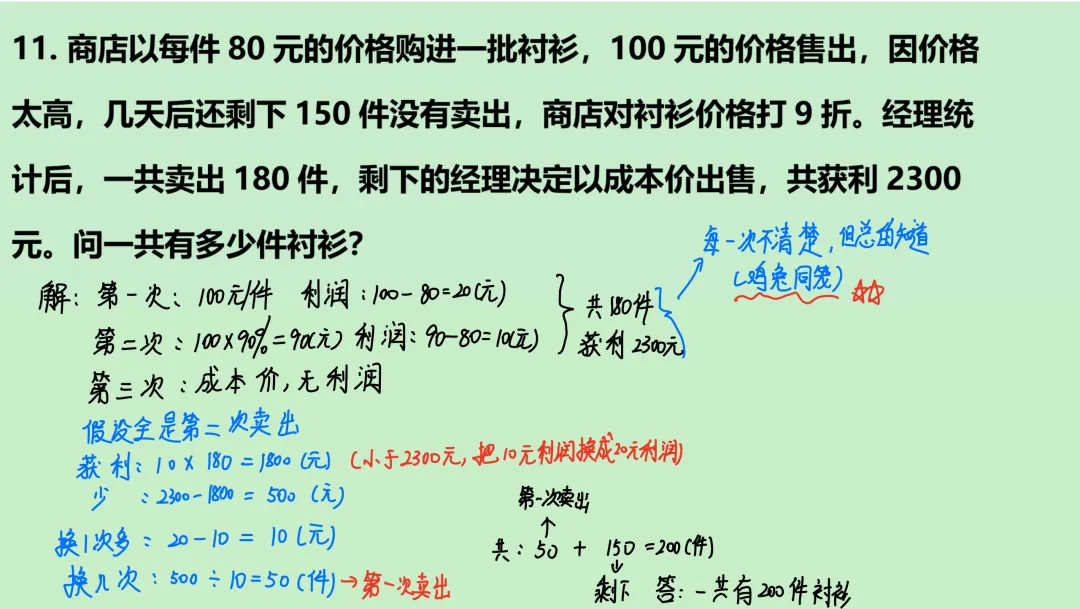 11. 商店以每件 80 元的价格购进一批衬衫，100 元的价格售出，因价格
太高，几天后还剩下 150 件没有卖出，商店对衬衫价格打 9 折。经理统
计后，一共卖出 180 件，剩下的经理决定以成本价出售，共获利 2300
元。问一共有多少件衬衫？
每一次不清楚，但总的知道
(鸡兔同笼) ☆☆
解：第一次：100元/件 利润：100-80=20(元)
共180件
第二次：100×90%=90(元) 利润：90-80=10(元)
获利2300元
第三次：成本价，无利润
假设全是第二次卖出
获利：10×180=1800(元) (小于2300元，把10元利润换成20元利润)
少：2300-1800=500(元)
第一次卖出
换1次多：20-10=10(元)
共：50+150=200(件)
换几次：500÷10=50(件)→第一次卖出
剩下 答：一共有200件衬衫